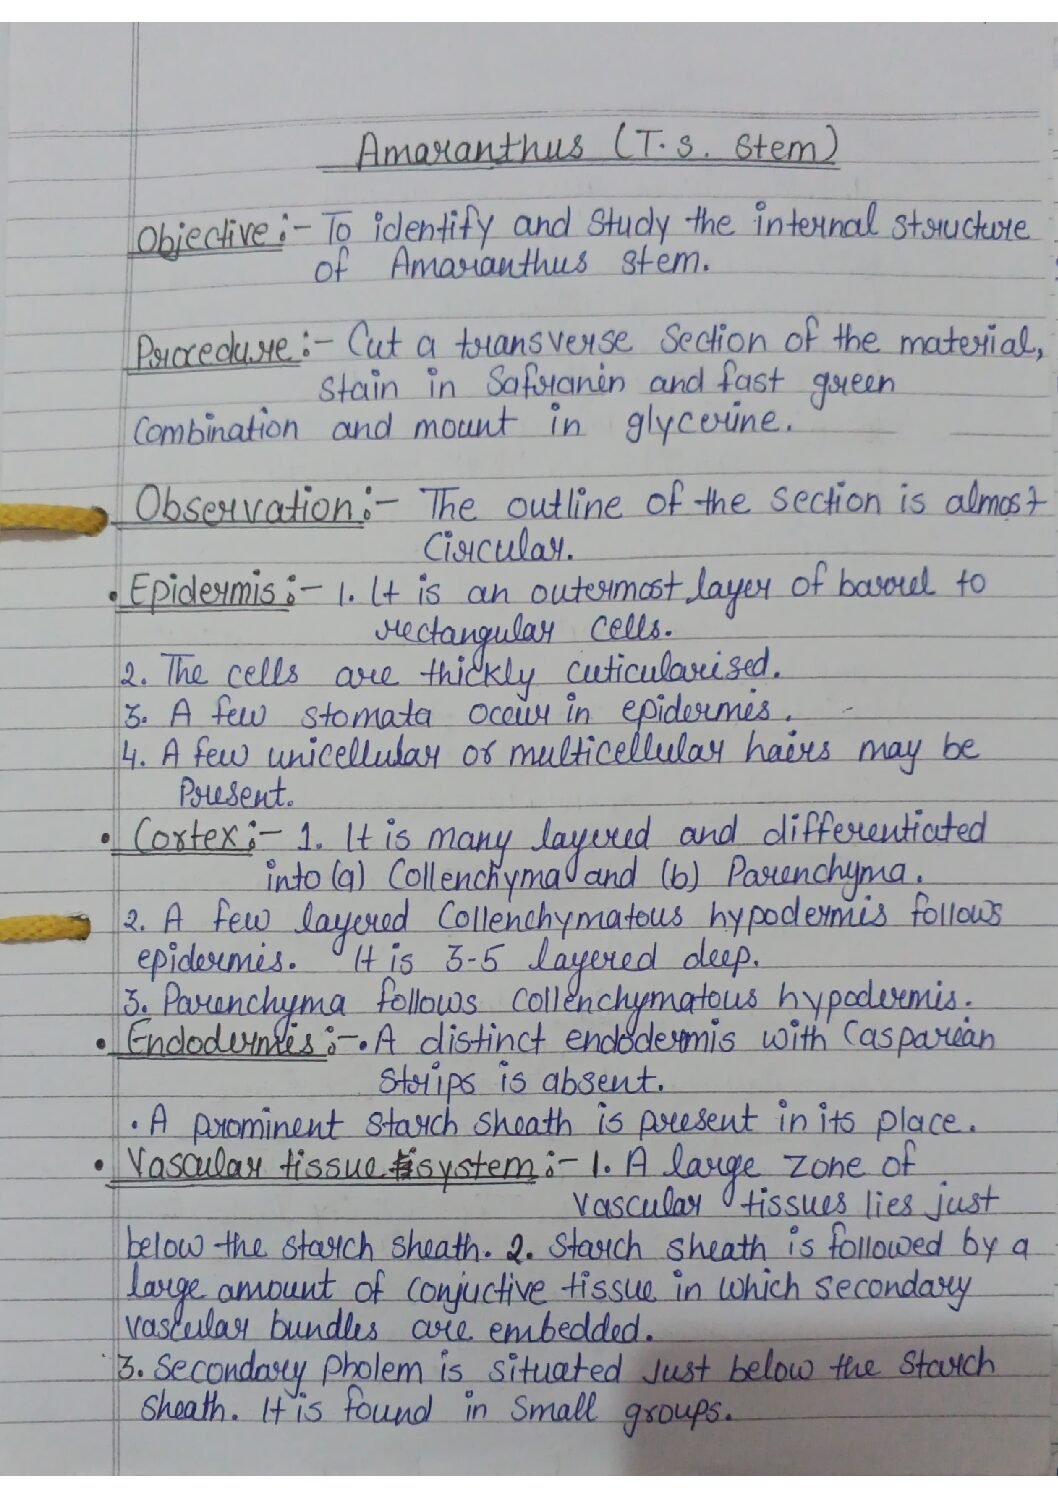 Amaranthus (T.S. Stem)
Objective :- To identify and study the internal structure
of Amaranthus stem.
Procedure :- Cut a transverse section of the material,
stain in Safranin and fast green
combination and mount in glycerine.
Observation :- The outline of the section is almost
circular.
• Epidermis :- 1. It is an outermost layer of barrel to
rectangular cells.
2. The cells are thickly cuticularised.
3. A few stomata occur in epidermis.
4. A few unicellular or multicellular hairs may be
present.
• Cortex :- 1. It is many layered and differentiated
into (a) Collenchyma and (b) Parenchyma.
2. A few layered collenchymatous hypodermis follows
epidermis. It is 3-5 layered deep.
3. Parenchyma follows collenchymatous hypodermis.
• Endodermis :- • A distinct endodermis with Casparian
strips is absent.
• A prominent starch sheath is present in its place.
• Vascular tissue system :- 1. A large zone of
vascular tissues lies just
below the starch sheath. 2. Starch sheath is followed by a
large amount of conjuctive tissue in which secondary
vascular bundles are embedded.
3. Secondary Pholem is situated just below the starch
sheath. It is found in small groups.